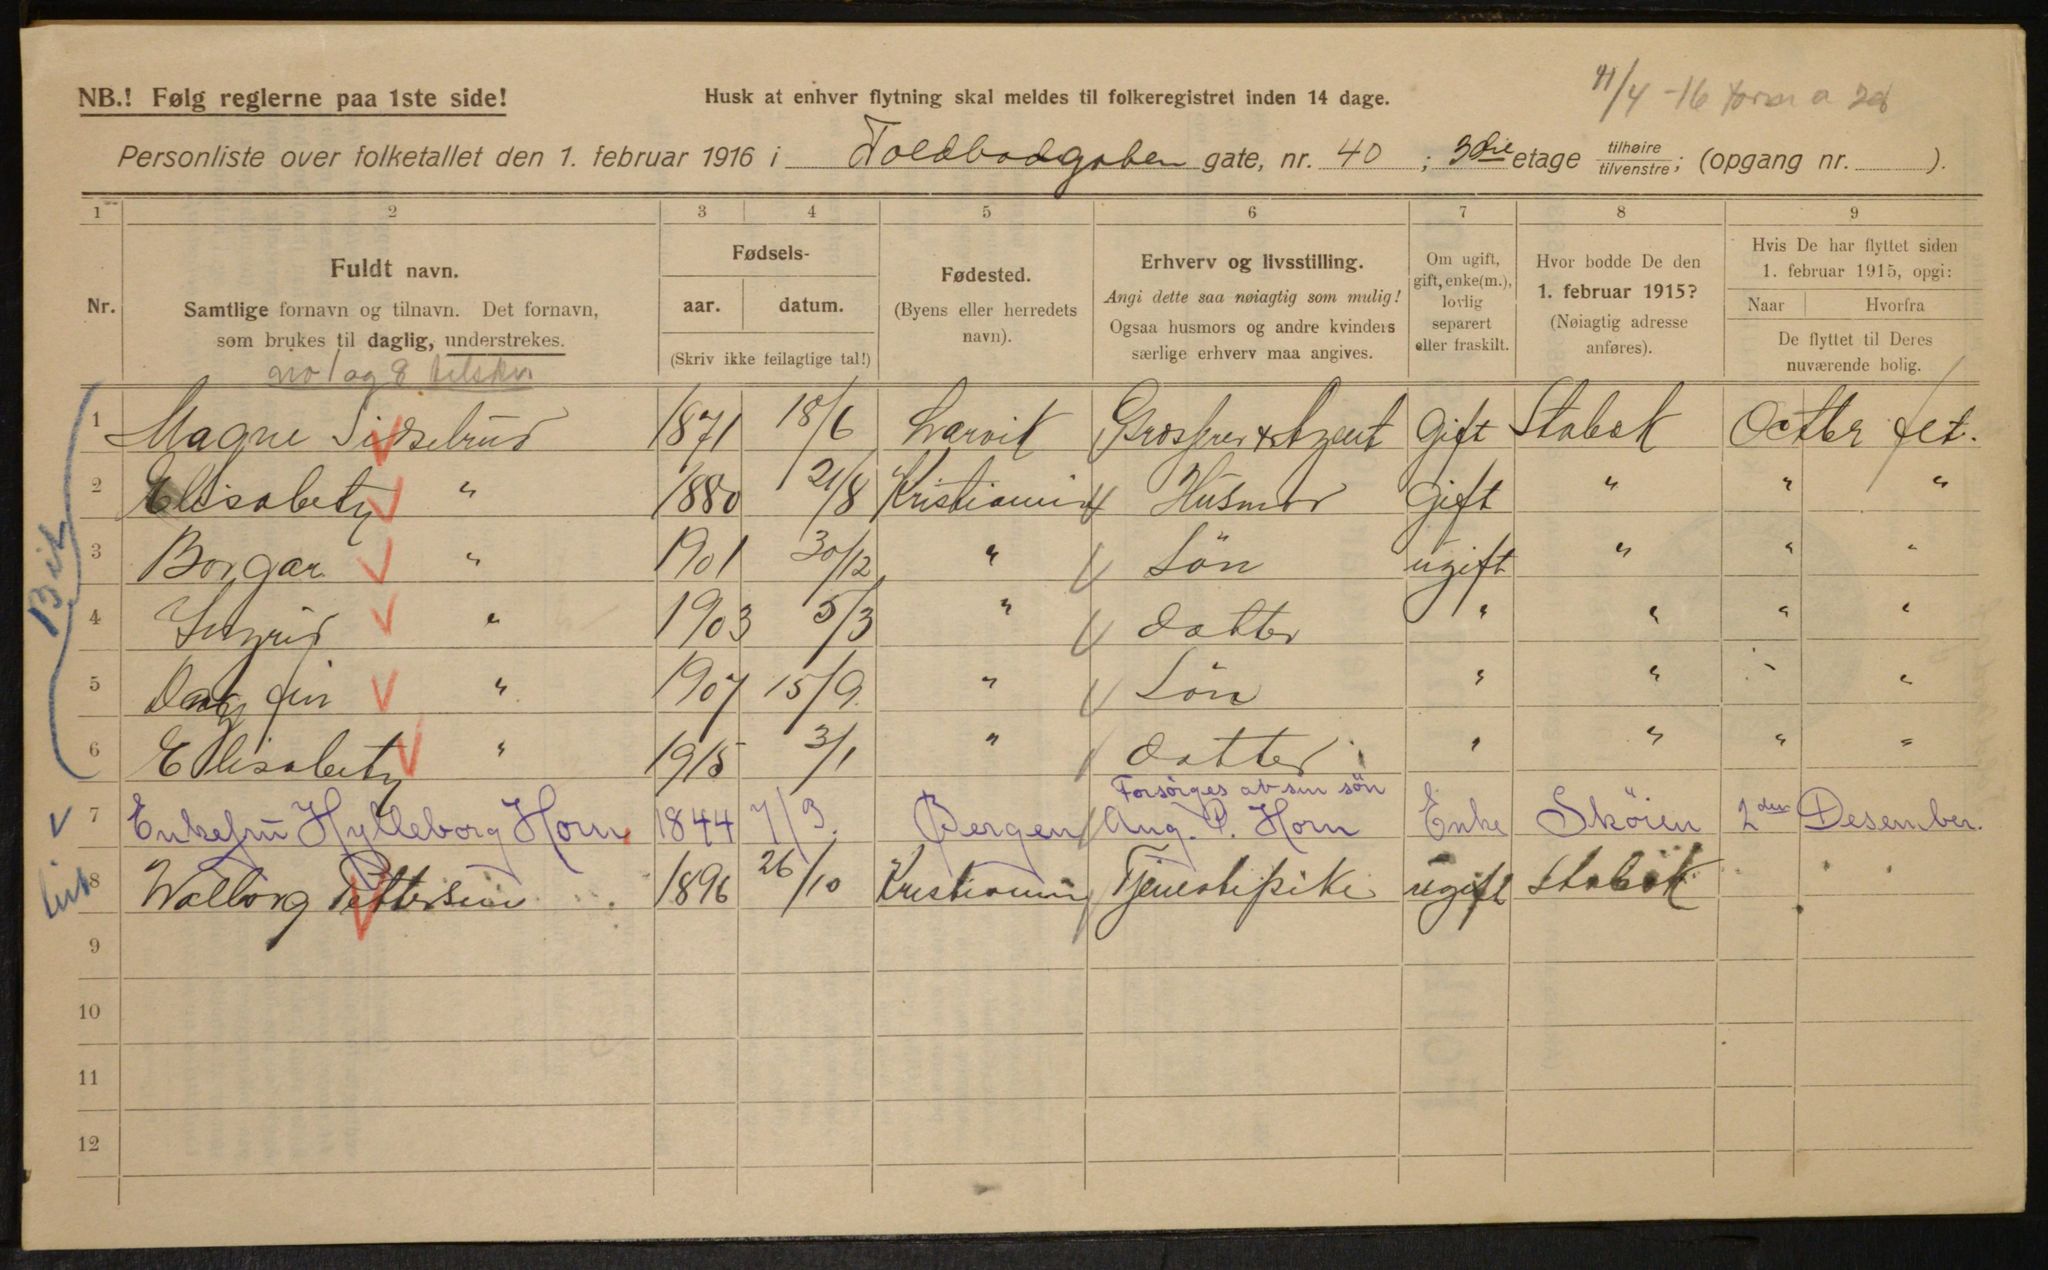 NB.! Følg reglerne paa 1ste side!
Husk at enhver flytning skal meldes til folkeregistret inden 14 dage.
11/4 -16
Personliste over folketallet den 1. februar 1916 i Toldbodgaten gate, nr. 40 ; 3die etage tilhøire/tilvenstre; (opgang nr. ).
1 2 3 4 5 6 7 8 9
Nr.
Fuldt navn.
Samtlige fornavn og tilnavn. Det fornavn,
som brukes til daglig, understrekes.
no 1 og 8
Fødsels-
aar. datum.
(Skriv ikke feilagtige tal!)
Fødested.
(Byens eller herredets
navn).
Erhverv og livsstilling.
Angi dette saa nøiagtig som mulig!
Ogsaa husmors og andre kvinders
særlige erhverv maa angives.
Om ugift,
gift, enke(m.),
lovlig
separert
eller fraskilt.
Hvor bodde De den
1. februar 1915?
(Nøiagtig adresse
anføres).
Hvis De har flyttet siden
1. februar 1915, opgi:
Naar Hvorfra
De flyttet til Deres
nuværende bolig.
1 Magne Sidselrud 1871 18/6 Larvik Grosserer & Agent Gift Stabek Octber
2 Elisabeth " 1880 21/8 Kristiania Husmor Gift " " "
3 Borgar " 1901 30/12 " Sön ugift " " "
4 Ingrid " 1903 5/3 " datter " " " "
5 Dagfin " 1907 15/9. " Sön " " " "
6 Elisabeth " 1915 3/1 " datter " " " "
Forsørges av sin sön
7 Enkefru Hylleborg Horn 1844 7/3. Bergen Aug. P. Horn Enke Skøien 2den Desember.
8 Walborg Pettersen 1896 26/10 Kristiania Tjenestepike ugift Stabek " "
9
10
11
12